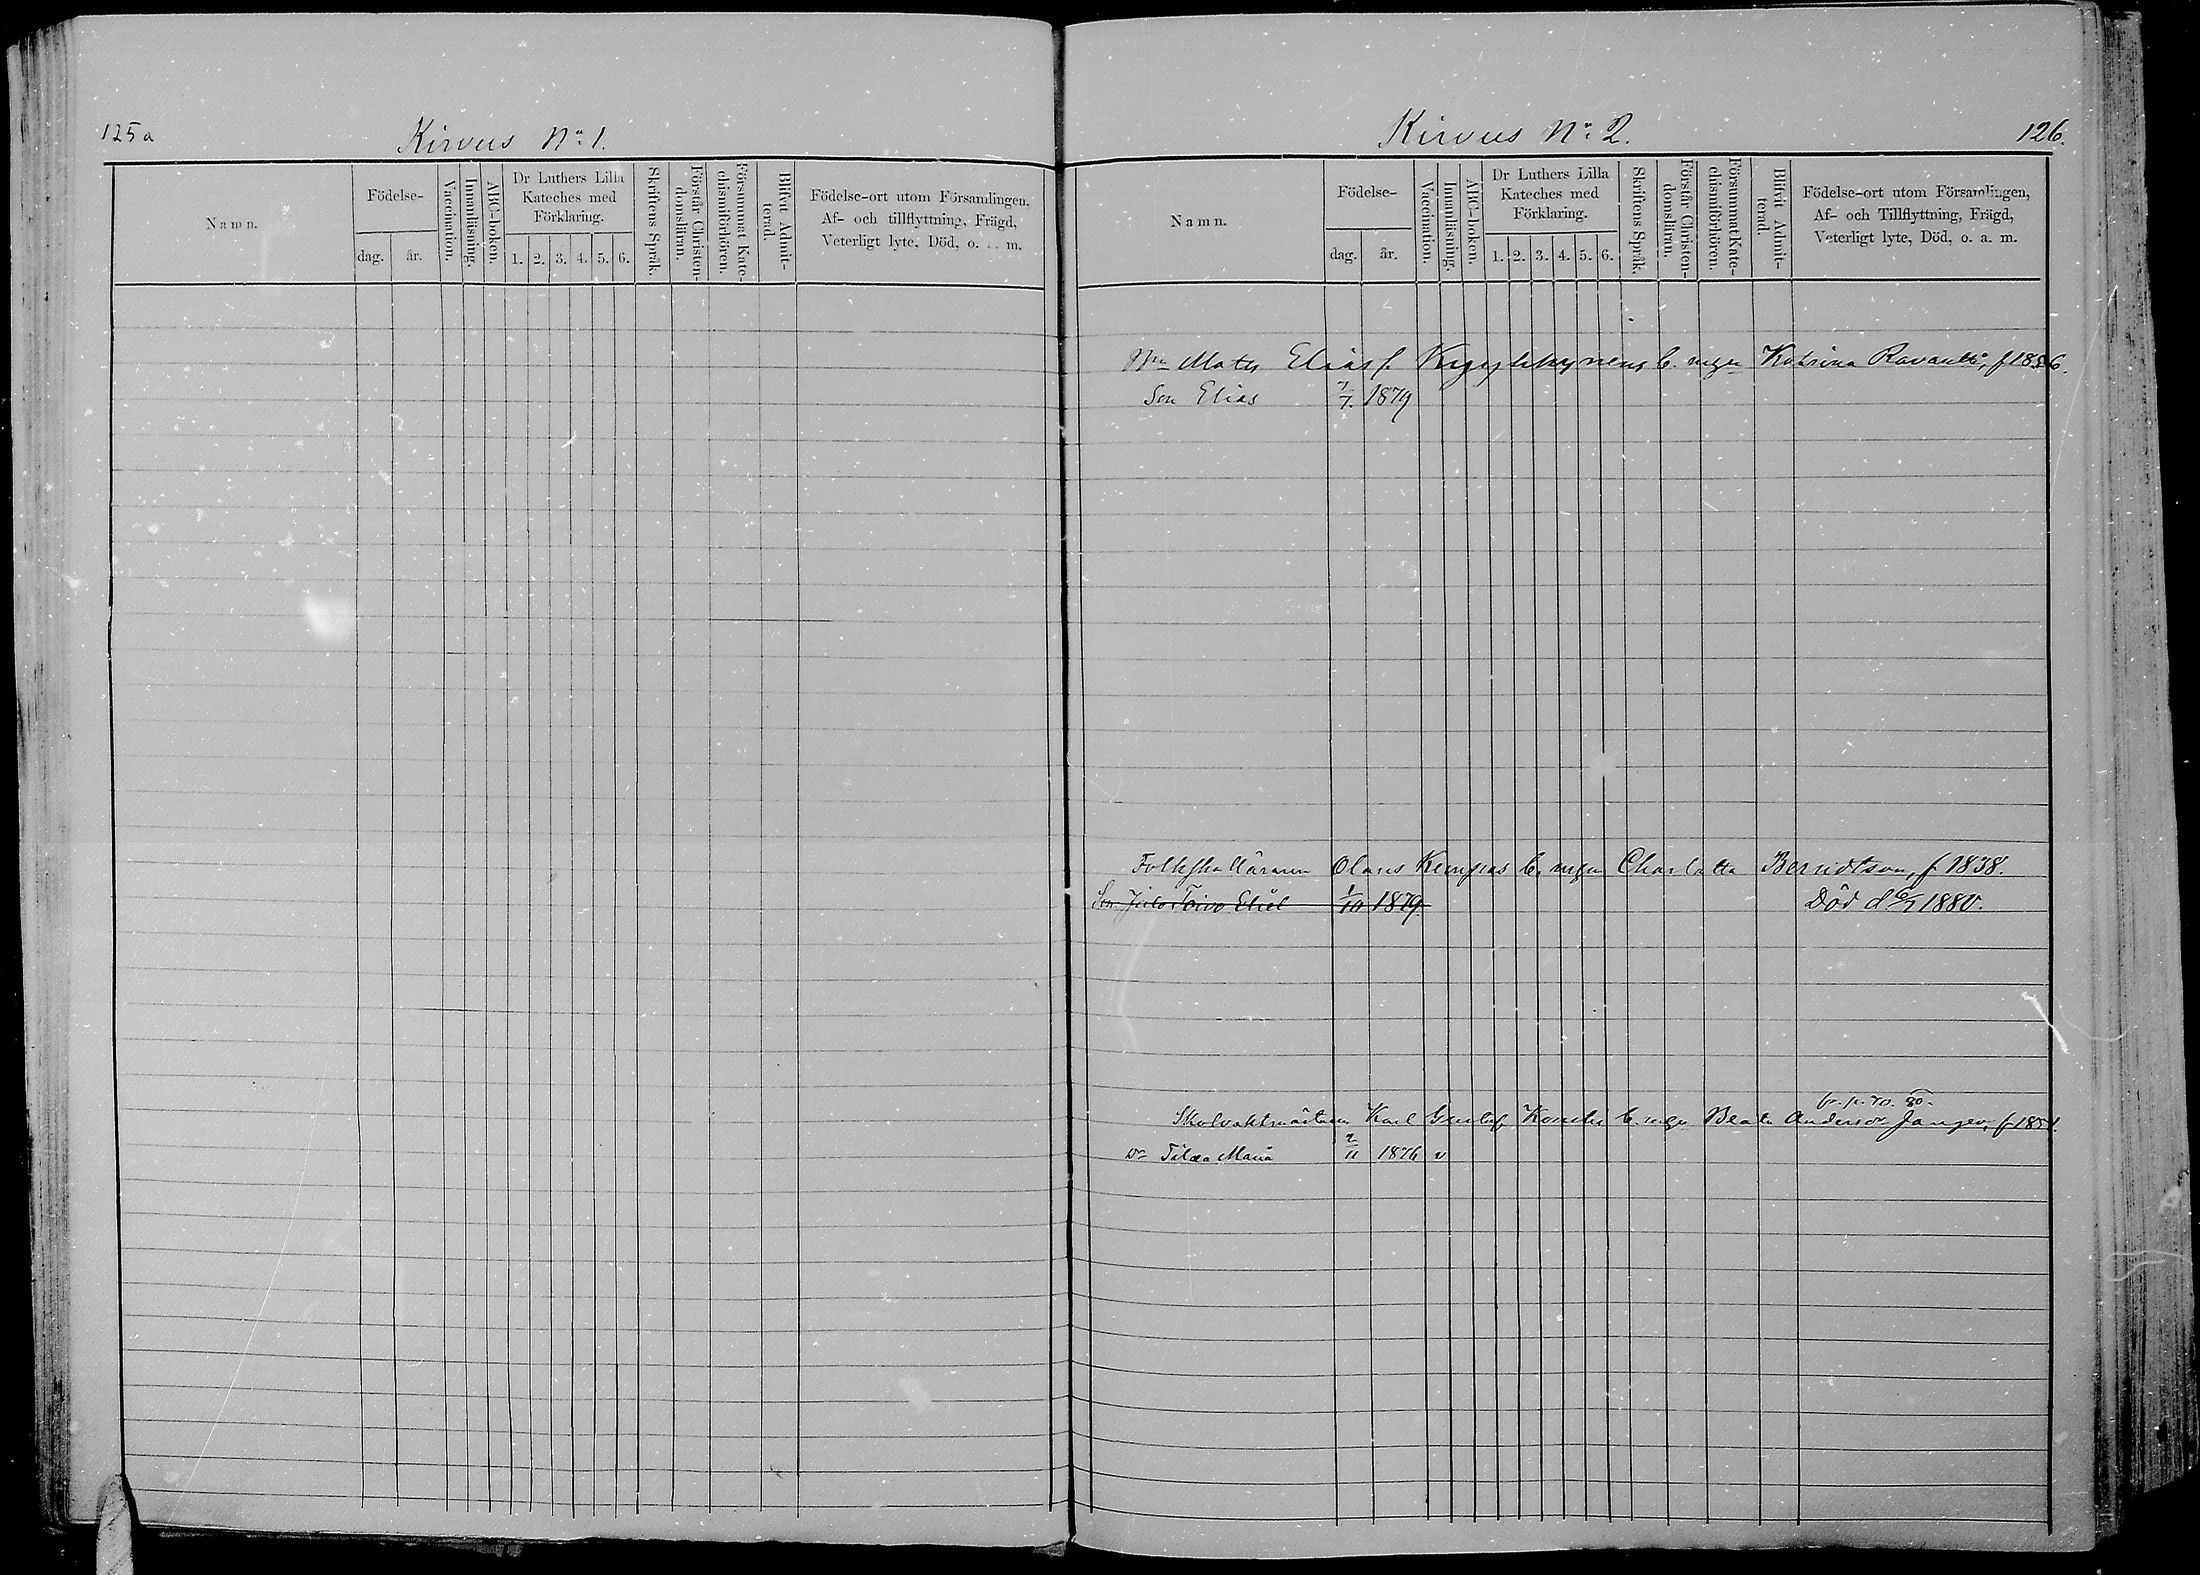 125a
Kirvus No 1.
Namn.
Födelse-
dag. år.
Vaccination.
Innanläsning.
ABC-boken.
Dr Luthers Lilla
Kateches med
Förklaring.
1. 2. 3. 4. 5. 6.
Skriftens Språk.
Förstår Christen-
domsläran.
Försummat Kate-
chismiförhören.
Blifvit Admit-
terad.
Födelse-ort utom Församlingen,
Af- och tillflyttning, Frägd,
Veterligt lyte, Död, o. a. m.
Kirvus No 2.
126.
Namn.
Födelse-
dag. år.
Vaccination.
Innanläsning.
ABC-boken.
Dr Luthers Lilla
Kateches med
Förklaring.
1. 2. 3. 4. 5. 6.
Skriftens Språk.
Förstår Christen-
domsläran.
Försummat Kate-
chismiförhören.
Blifvit Admit-
terad.
Födelse-ort utom Församlingen,
Af- och Tillflyttning, Frägd,
Veterligt lyte, Död, o. a. m.
Mats Elias f. Katrina
Son Elias 1879
Olaus Kempas Charlotta Berndtson, f 1838.
Son Toivo Eliel 1/10 1879. Död d 1880.
Karl Gustaf Beata Andersdr
dr Maria 2/11 1876 v